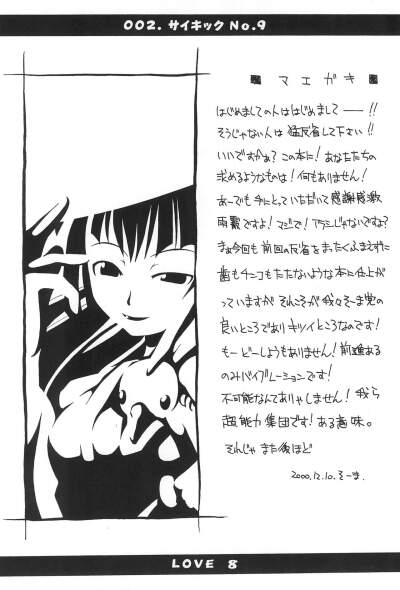 002. サイキック No.9
マエガキ
はじめましての人ははじめまして――!!
そうじゃない人は猛反省して下さい!!
いいですかぁ?この本に!あなたたちの
求めるようなものは!何もありません!
あーでも手にとっていただいて感謝感激
雨霰ですよ!マジで!イヤミじゃないですよ?
まぁ今回も前回の反省をまったくふまえずに
歯もチ〇コもたたないような本に仕上が
っていますがそれこそが我々そーま党の
良いところでありキツイところなのです!
もーどーしようもありません!前進ある
のみバイブレーションです!
不可能なんてありゃしません!我ら
超能力集団です!ある意味。
それじゃまた後ほど
2000.12.10.そーま.
LOVE 8